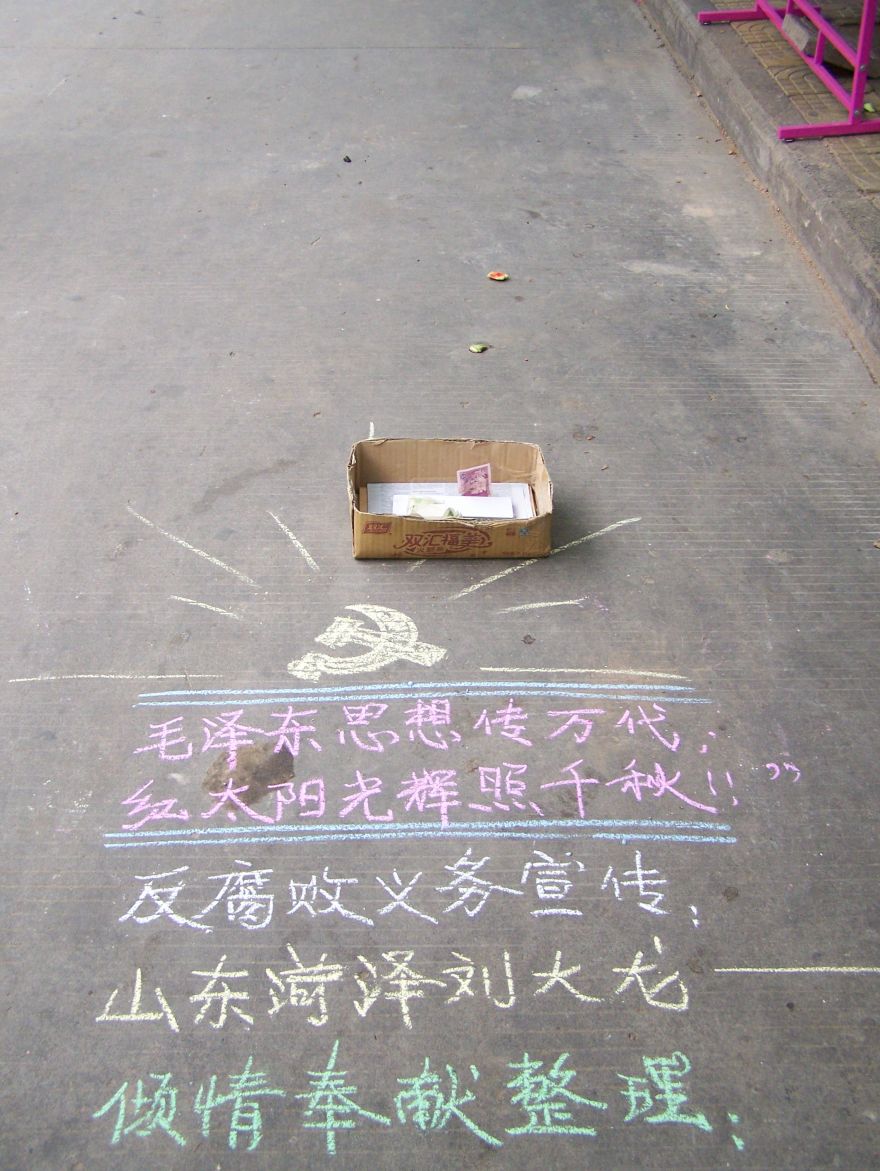 双汇福美
毛泽东思想传万代;
红太阳光辉照千秋!!”
反腐败义务宣传;
山东菏泽刘大龙
倾情奉献整理;